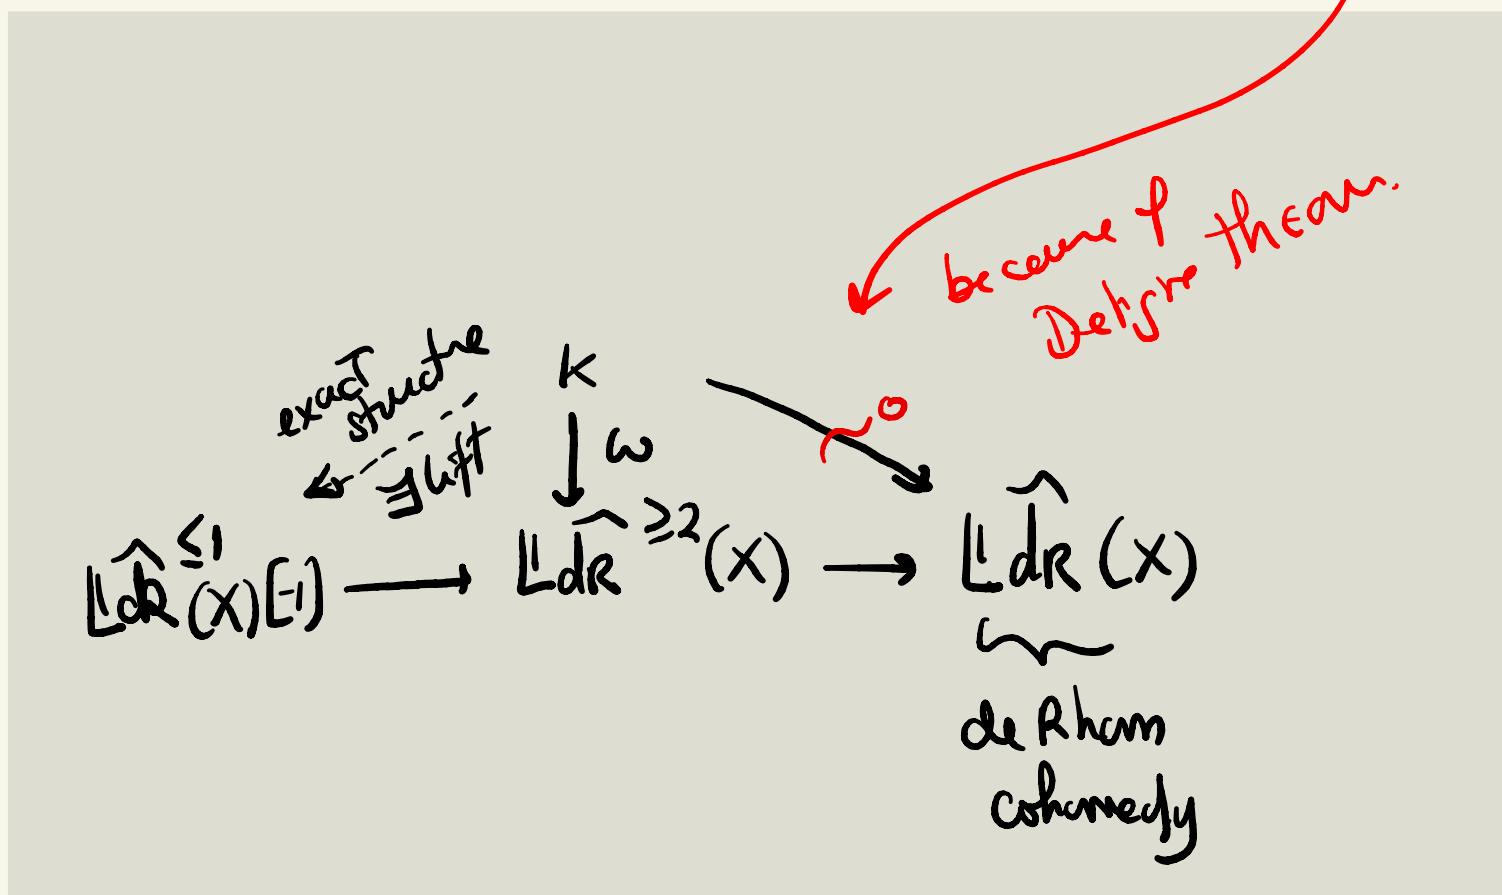 because of
Deligne theorem.
exact
structure
∃ lift
k
ω
0
𝕃d̂R^{≤1}(X)[-1] ⟶ 𝕃d̂R^{≥2}(X) ⟶ 𝕃d̂R(X)
de Rham
cohomology